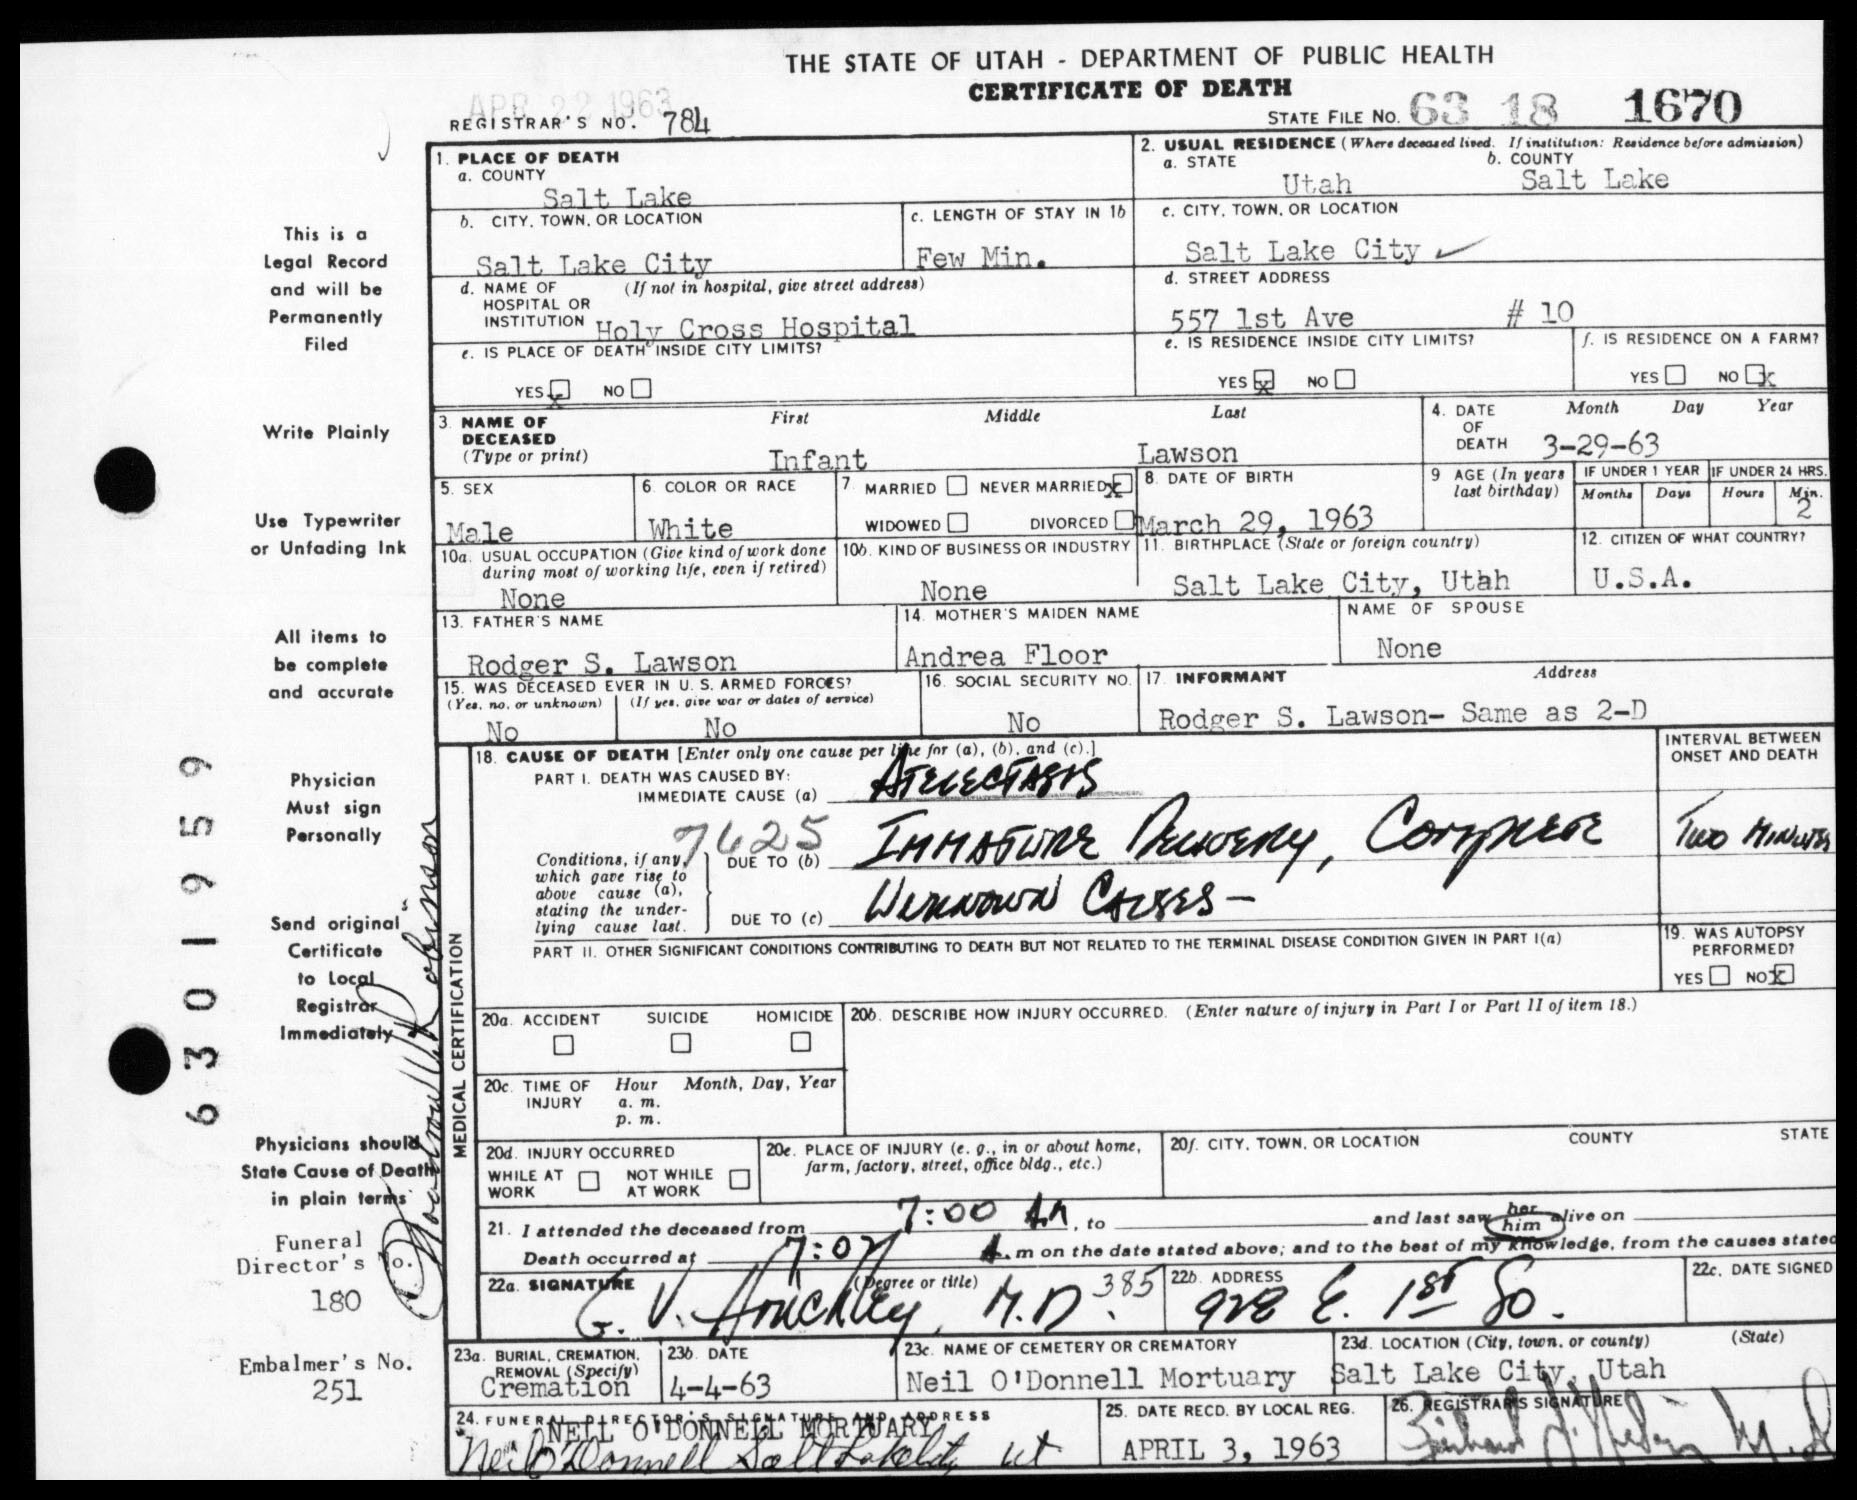 THE STATE OF UTAH - DEPARTMENT OF PUBLIC HEALTH
CERTIFICATE OF DEATH
APR 22 1963
REGISTRAR'S NO. 784
STATE FILE NO. 63 18 1670
This is a
Legal Record
and will be
Permanently
Filed
Write Plainly
Use Typewriter
or Unfading Ink
All items to
be complete
and accurate
Physician
Must sign
Personally
Send original
Certificate
to Local
Registrar
Immediately
Physicians should
State Cause of Death
in plain terms
Funeral
Director's No.
180
Embalmer's No.
251
6301959
Robinson
1. PLACE OF DEATH
a. COUNTY
Salt Lake
b. CITY, TOWN, OR LOCATION
Salt Lake City
c. LENGTH OF STAY IN 1b
Few Min.
d. NAME OF (If not in hospital, give street address)
HOSPITAL OR
INSTITUTION Holy Cross Hospital
e. IS PLACE OF DEATH INSIDE CITY LIMITS?
YES x NO
2. USUAL RESIDENCE (Where deceased lived. If institution: Residence before admission)
a. STATE b. COUNTY
Utah Salt Lake
c. CITY, TOWN, OR LOCATION
Salt Lake City
d. STREET ADDRESS
557 1st Ave # 10
e. IS RESIDENCE INSIDE CITY LIMITS?
YES x NO
f. IS RESIDENCE ON A FARM?
YES NO x
3. NAME OF DECEASED (Type or print)
First Middle Last
Infant Lawson
4. DATE OF DEATH Month Day Year
3-29-63
5. SEX
Male
6. COLOR OR RACE
White
7. MARRIED NEVER MARRIED x
WIDOWED DIVORCED
8. DATE OF BIRTH
March 29, 1963
9 AGE (In years last birthday)
IF UNDER 1 YEAR IF UNDER 24 HRS.
Months Days Hours Min.
2
10a. USUAL OCCUPATION (Give kind of work done
during most of working life, even if retired)
None
10b. KIND OF BUSINESS OR INDUSTRY
None
11. BIRTHPLACE (State or foreign country)
Salt Lake City, Utah
12. CITIZEN OF WHAT COUNTRY?
U.S.A.
13. FATHER'S NAME
Rodger S. Lawson
14. MOTHER'S MAIDEN NAME
Andrea Floor
NAME OF SPOUSE
None
15. WAS DECEASED EVER IN U. S. ARMED FORCES?
(Yes, no, or unknown) (If yes, give war or dates of service)
No No
16. SOCIAL SECURITY NO.
No
17. INFORMANT Address
Rodger S. Lawson- Same as 2-D
MEDICAL CERTIFICATION
18. CAUSE OF DEATH [Enter only one cause per line for (a), (b), and (c).]
PART I. DEATH WAS CAUSED BY:
IMMEDIATE CAUSE (a) ATELECTASIS
INTERVAL BETWEEN
ONSET AND DEATH
7625
Conditions, if any,
which gave rise to
above cause (a),
stating the under-
lying cause last.
DUE TO (b) IMMATURE DELIVERY, COMPLETE
TWO MINUTES
DUE TO (c) UNKNOWN CAUSES -
PART II. OTHER SIGNIFICANT CONDITIONS CONTRIBUTING TO DEATH BUT NOT RELATED TO THE TERMINAL DISEASE CONDITION GIVEN IN PART I(a)
19. WAS AUTOPSY
PERFORMED?
YES NO x
20a. ACCIDENT SUICIDE HOMICIDE
20b. DESCRIBE HOW INJURY OCCURRED. (Enter nature of injury in Part I or Part II of item 18.)
20c. TIME OF INJURY Hour Month, Day, Year
a. m.
p. m.
20d. INJURY OCCURRED
WHILE AT WORK NOT WHILE AT WORK
20e. PLACE OF INJURY (e. g., in or about home,
farm, factory, street, office bldg., etc.)
20f. CITY, TOWN, OR LOCATION COUNTY STATE
21. I attended the deceased from 7:00 A.M, to and last saw her him alive on
Death occurred at 7:02 A. m on the date stated above; and to the best of my knowledge, from the causes stated
22a. SIGNATURE (Degree or title) 385
G. V. Hinckley, M.D.
22b. ADDRESS
928 E. 1st So.
22c. DATE SIGNED
23a. BURIAL, CREMATION,
REMOVAL (Specify)
Cremation
23b. DATE
4-4-63
23c. NAME OF CEMETERY OR CREMATORY
Neil O'Donnell Mortuary
23d. LOCATION (City, town, or county) (State)
Salt Lake City, Utah
24. FUNERAL DIRECTOR'S SIGNATURE AND ADDRESS
NEIL O'DONNELL MORTUARY
Neil O'Donnell Salt Lake City ut
25. DATE RECD. BY LOCAL REG.
APRIL 3, 1963
26. REGISTRAR'S SIGNATURE